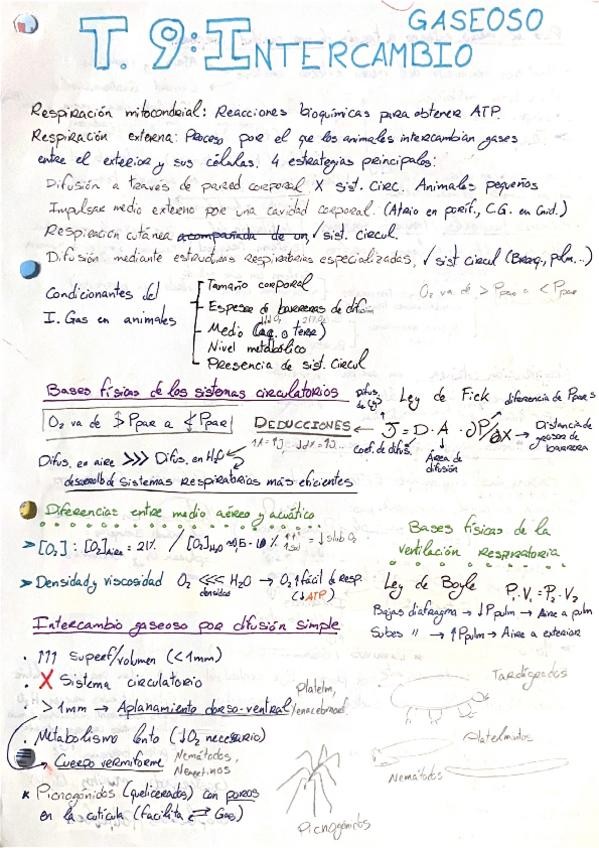 T. 9: INTERCAMBIO GASEOSO
Respiración mitocondrial: Reacciones bioquímicas para obtener ATP.
Respiración externa: Proceso por el que los animales intercambian gases
entre el exterior y sus células. 4 estrategias principales:
Difusión a través de pared corporal X sist. circ. Animales pequeños
Impulsar medio externo por una cavidad corporal. (Atrio en porif., C.G. en Cnid.)
Respiración cutánea acompañada de un, √ sist. circul.
Difusión mediante estructuras respiratorias especializadas, √ sist circul (Branq., pulm...)
O₂ va de > Ppar a < Ppar
Condicionantes del
I. Gas en animales
Tamaño corporal
Espesor de barreras de difusión
Medio (aq. o terr)
Nivel metabólico
Presencia de sist. Circul
Bases físicas de los sistemas circulatorios
O₂ va de > Ppar a < Ppar
DEDUCCIONES ←
Ley de Fick
diferencia de Ppars
J = D · A · dP/dX → Distancia de
grosor de
barrera
coef. de difus.
Área de
difusión
Difus. en aire >>> Difus. en H₂O
desarrollo de sistemas respiratorios más eficientes
Diferencias entre medio aéreo y acuático
➤ [O₂] : [O₂]Aire = 21% / [O₂]H₂O
➤ Densidad y viscosidad O₂ <<< H₂O → O₂ ↑ fácil de resp.
densidad
(↓ATP)
Bases físicas de la
ventilación respiratoria
Ley de Boyle P₁·V₁ = P₂·V₂
Bajas diafragma → ↓Ppulm → Aire a pulm
Subes " → ↑Ppulm → Aire a exterior
Intercambio gaseoso por difusión simple
· ↑↑↑ Superf/volumen (<1mm)
· X Sistema circulatorio
· >1mm → Aplanamiento dorso-ventral
· Metabolismo lento (↓O₂ necesario)
→ Cuerpo vermiforme Nemátodos,
Nemertinos
* Picnogónidos (quelicerados) con poros
en la cutícula (facilita ⇄ Gas)
Tardígrados
Platelmintos
Nemátodos
Picnogónidos